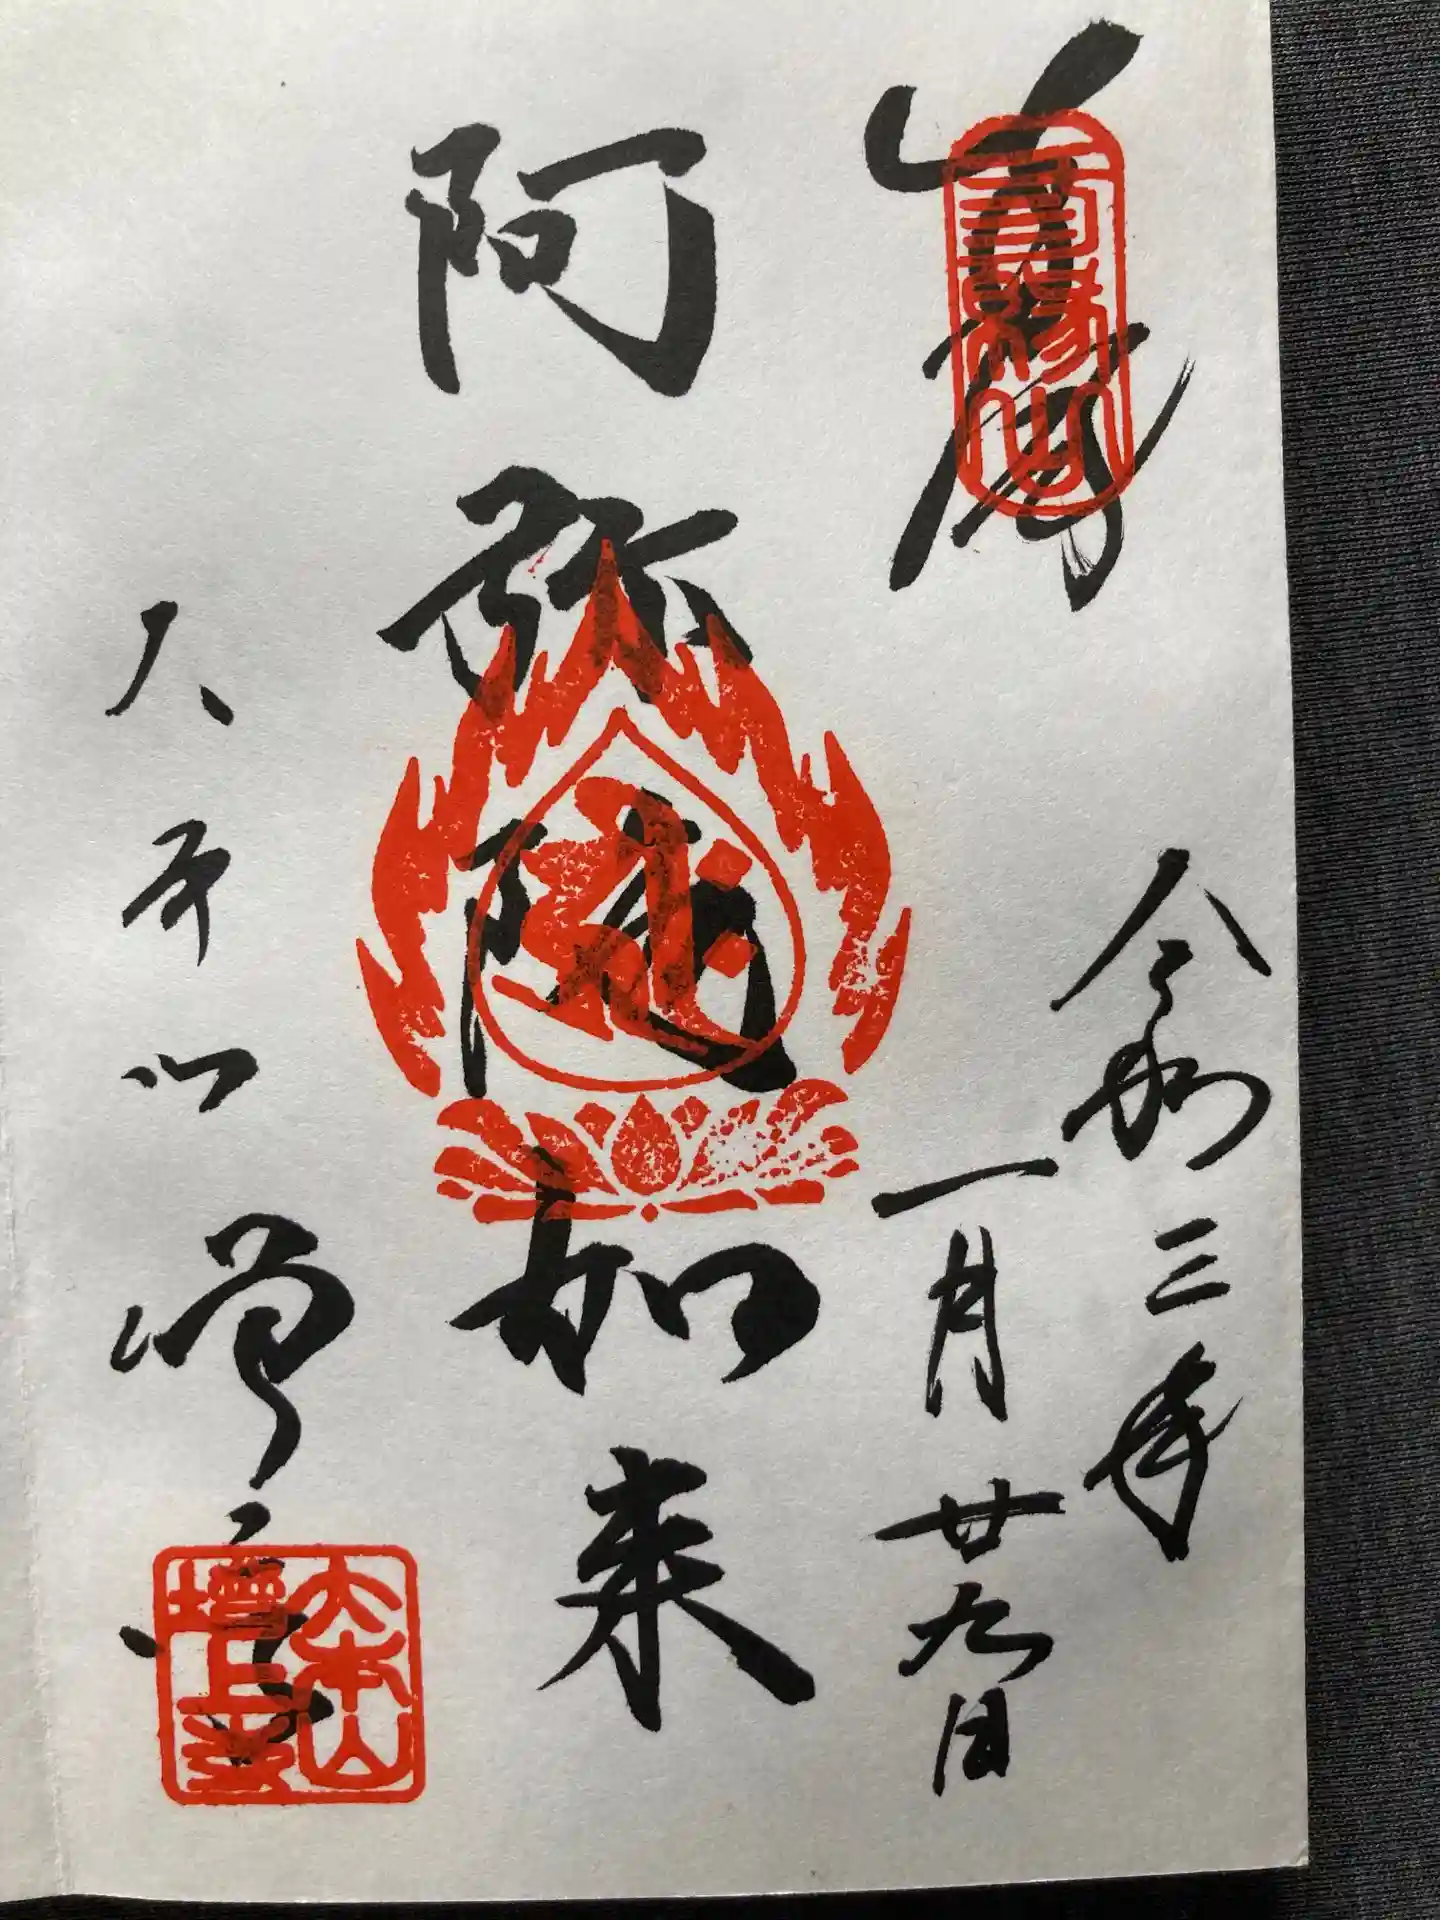 三縁山
令和三年
一月廿九日
阿弥陀如来
大本山増上寺
大本山
増上寺